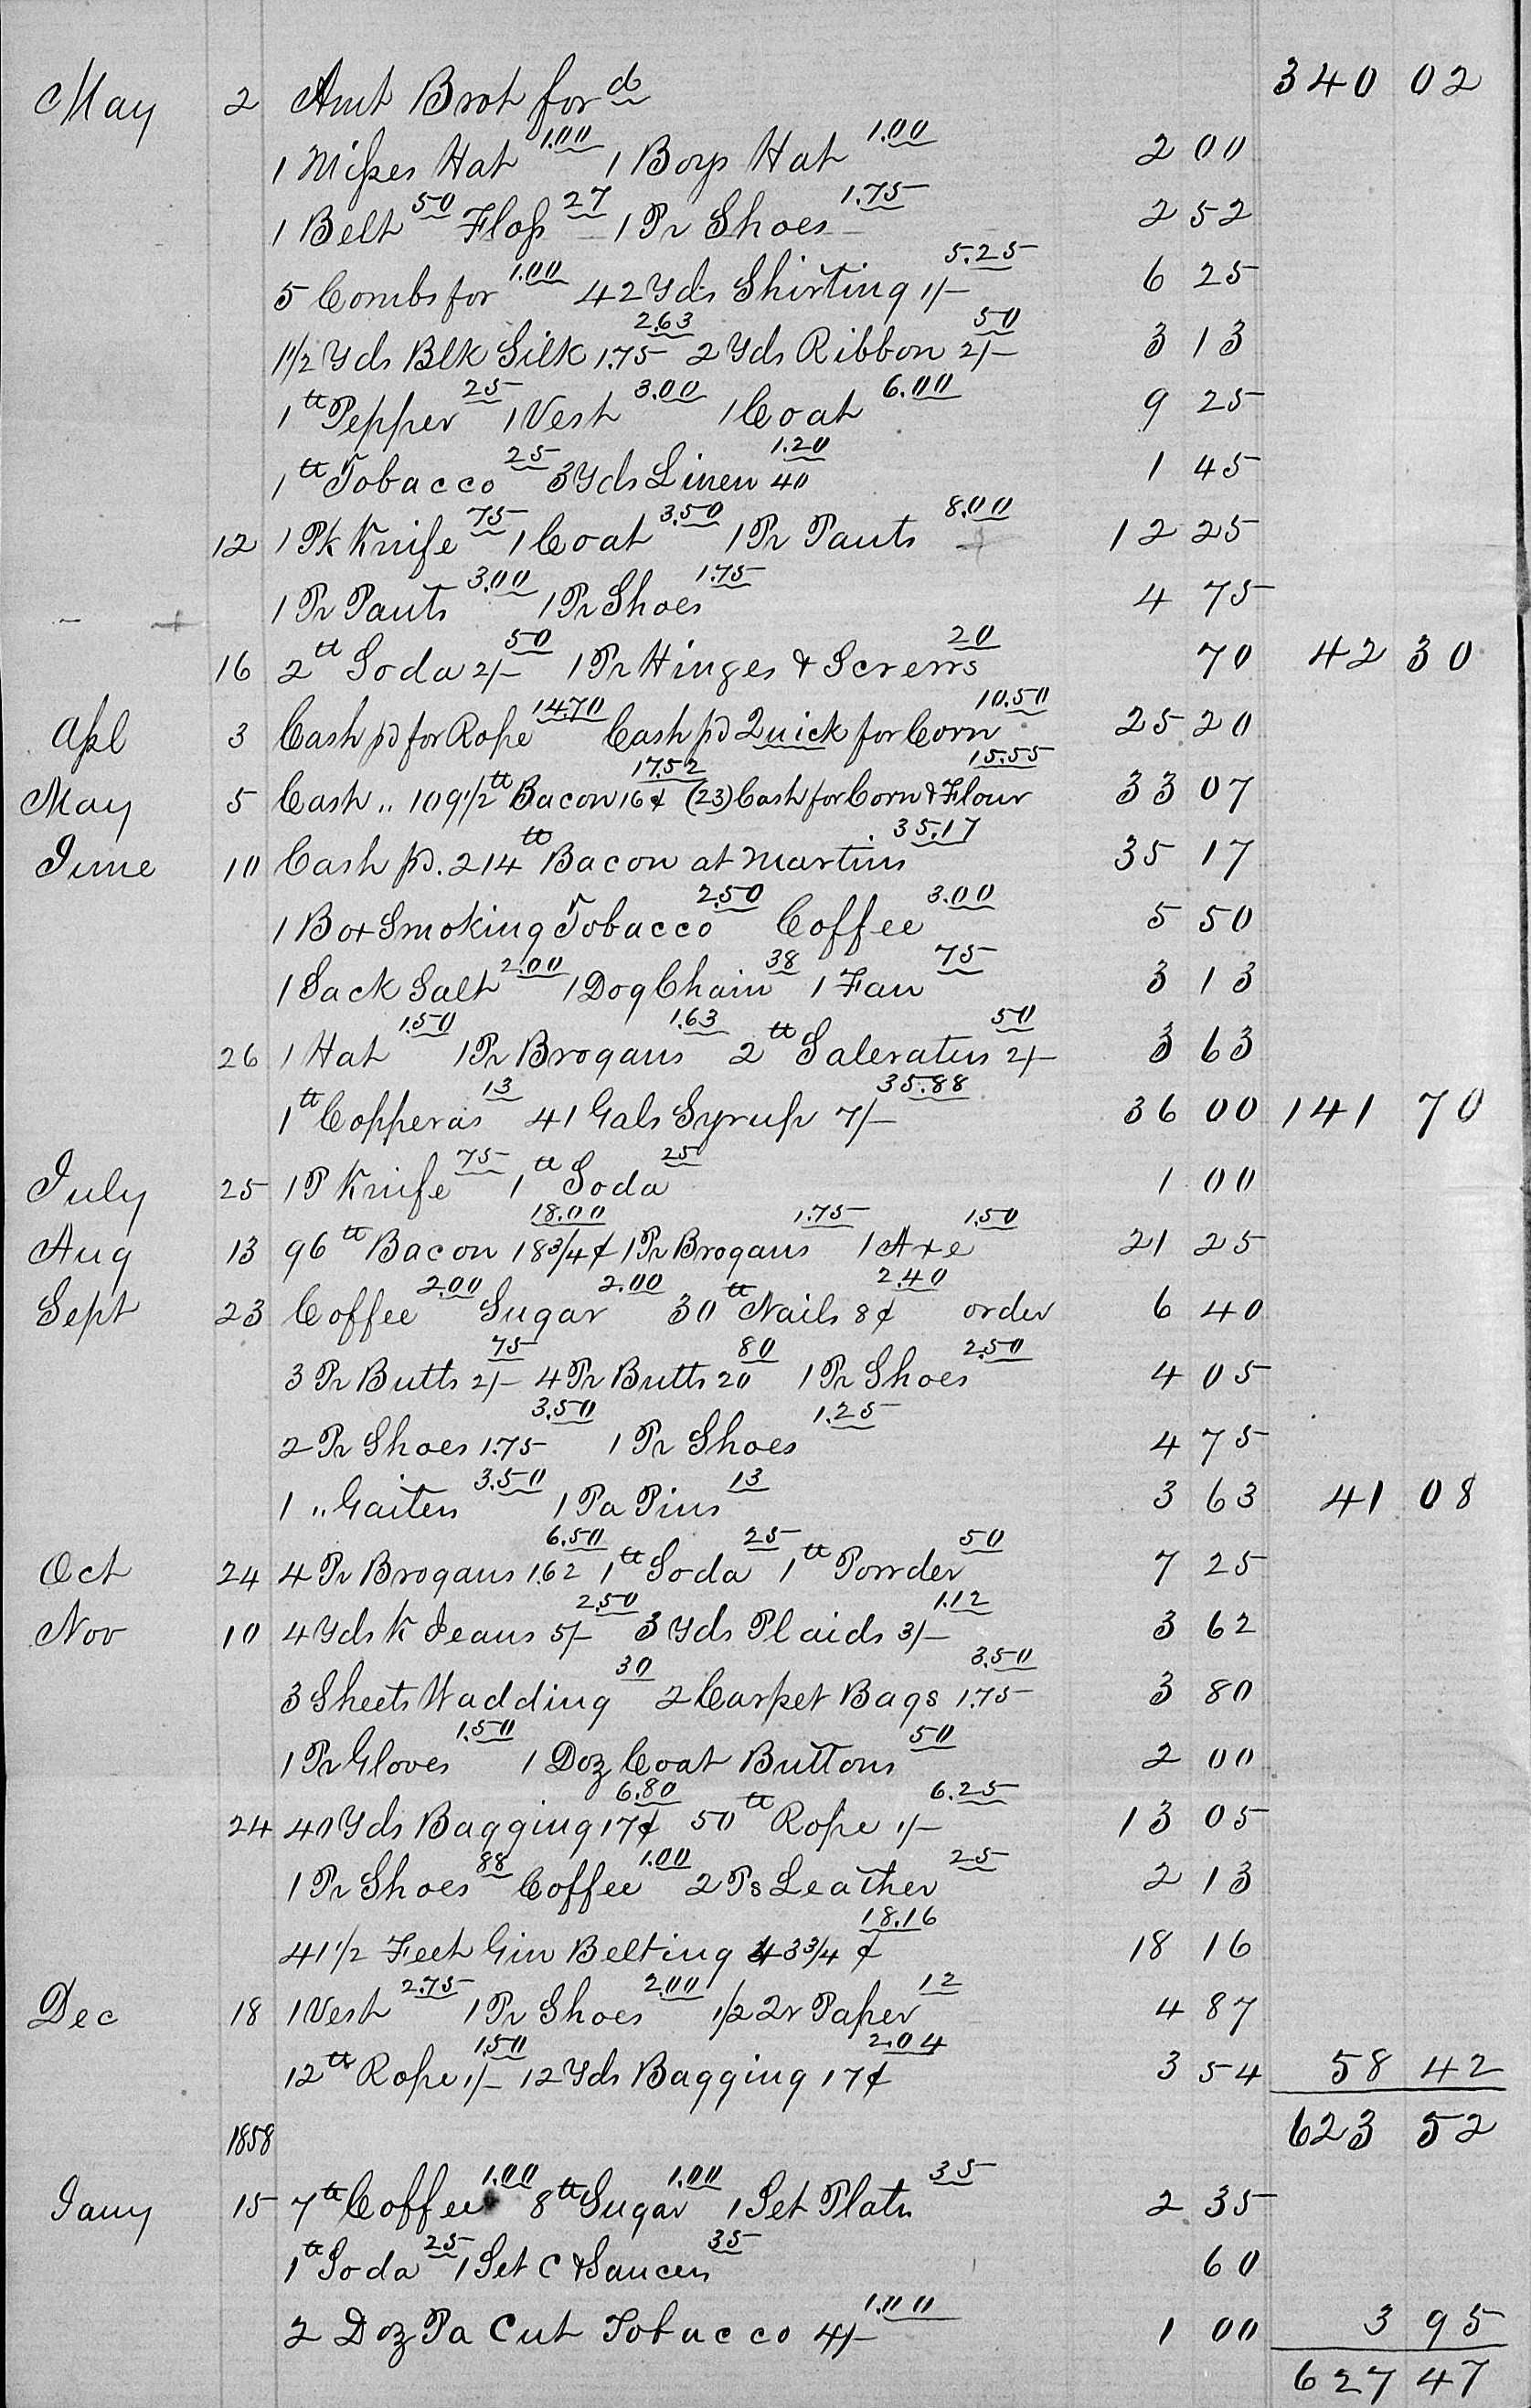 May 2 Amt Brot ford 340 02
1 Misses Hat 1.00 1 Boys Hat 1.00 2 00
1 Belt 50 Floss 27 1 Pr Shoes 1.75 2 52
5 Combs for 1.00 42 Yds Shirting 1/- 5.25 6 25
1 1/2 Yds Blk Silk 1.75 2.63 2 Yds Ribbon 2/- 50 3 13
1 lb Pepper 25 1 Vest 3.00 1 Coat 6.00 9 25
1 lb Tobacco 25 3 Yds Linen 40 1.20 1 45
12 1 Pk Knife 75 1 Coat 3.50 1 Pr Pants 8.00 12 25
1 Pr Pants 3.00 1 Pr Shoes 1.75 4 75
16 2 lb Soda 2/- 50 1 Pr Hinges & Screws 20 70 42 30
Apl 3 Cash pd for Rope 14.70 Cash pd Quick for Corn 10.50 25 20
May 5 Cash " 109 1/2 lb Bacon 16¢ 17.52 (23) Cash for Corn & Flour 15.55 33 07
June 10 Cash pd. 214 lb Bacon at Martins 35.17 35 17
1 Box Smoking Tobacco 2.50 Coffee 3.00 5 50
1 Sack Salt 2.00 1 Dog Chain 38 1 Fan 75 3 13
26 1 Hat 1.50 1 Pr Brogans 1.63 2 lb Saleratus 2/- 50 3 63
1 lb Copperas 13 41 Gals Syrup 7/- 35.88 36 00 141 70
July 25 1 P Knife 75 1 lb Soda 25 1 00
Aug 13 96 lb Bacon 18 3/4¢ 18.00 1 Pr Brogans 1.75 1 Axe 1.50 21 25
Sept 23 Coffee 2.00 Sugar 2.00 30 lb Nails 8¢ 2.40 order 6 40
3 Pr Butts 2/- 75 4 Pr Butts 20 80 1 Pr Shoes 2.50 4 05
2 Pr Shoes 1.75 3.50 1 Pr Shoes 1.25 4 75
1 " Gaiters 3.50 1 Pa Pins 13 3 63 41 08
Oct 24 4 Pr Brogans 1.62 6.50 1 lb Soda 25 1 lb Powder 50 7 25
Nov 10 4 Yds K Jeans 5/- 2.50 3 Yds Plaids 3/- 1.12 3 62
3 Sheets Wadding 30 2 Carpet Bags 1.75 3.50 3 80
1 Pr Gloves 1.50 1 Doz Coat Buttons 50 2 00
24 40 Yds Bagging 17¢ 6.80 50 lb Rope 1/- 6.25 13 05
1 Pr Shoes 88 Coffee 1.00 2 Ps Leather 25 2 13
41 1/2 Feet Gin Belting 43 3/4 ¢ 18.16 18 16
Dec 18 1 Vest 2.75 1 Pr Shoes 2.00 1/2 Qr Paper 12 4 87
12 lb Rope 1/- 1.50 12 Yds Bagging 17¢ 2.04 3 54 58 42
623 52
1858
Jany 15 7 lb Coffee 1.00 8 lb Sugar 1.00 1 Set Plats 35 2 35
1 lb Soda 25 1 Set C & Saucers 35 60
2 Doz Pa Cut Tobacco 4/- 1.00 1 00 3 95
627 47